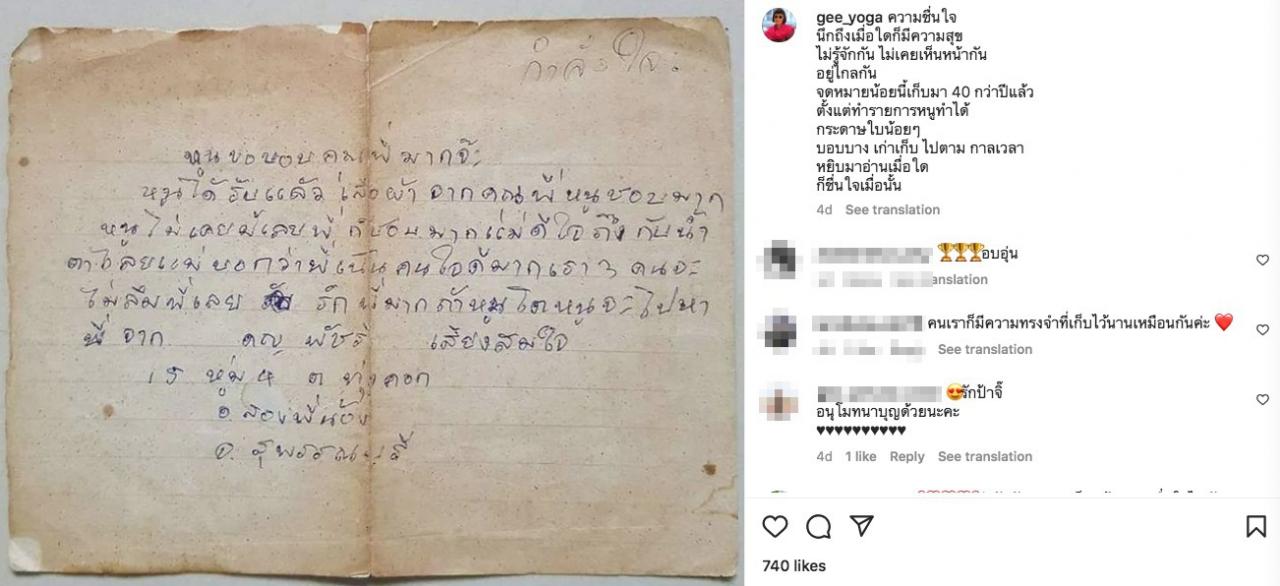 กำลังใจ
หนูขอบอบคุณพี่มากจ้ะ
หนูได้รับแล้วเสื้อผ้าจากคุณพี่หนูชอบมาก
หนูไม่เคยมีเลยพี่ก็ชอบมากแม่ดีใจถึงกับน้ำ
ตาไหลแม่บอกว่าพี่เป็นคนใจดีมากเรา 3 คนจะ
ไม่ลืมพี่เลย รักพี่มากถ้าหนูโตหนูจะไปหา
พี่ จาก ดญ พัชรี เสียงสมใจ
15 หมู่ ต ทุ่งคอก
อ สองพี่น้อง
จ. สุพรรณบุรี
gee_yoga ความชื่นใจ
นึกถึงเมื่อใดก็มีความสุข
ไม่รู้จักกัน ไม่เคยเห็นหน้ากัน
อยู่ไกลกัน
จดหมายน้อยนี้เก็บมา 40 กว่าปีแล้ว
ตั้งแต่ทำรายการหนูทำได้
กระดาษใบน้อยๆ
บอบบาง เก่าเก็บ ไปตาม กาลเวลา
หยิบมาอ่านเมื่อใด
ก็ชื่นใจเมื่อนั้น
4d See translation
🏆🏆🏆อบอุ่น
anslation
คนเราก็มีความทรงจำที่เก็บไว้นานเหมือนกันค่ะ ❤️
See translation
😍รักป้าจี๊
อนุโมทนาบุญด้วยนะคะ
♥♥♥♥♥♥♥♥♥♥
4d 1 like Reply See translation
740 likes